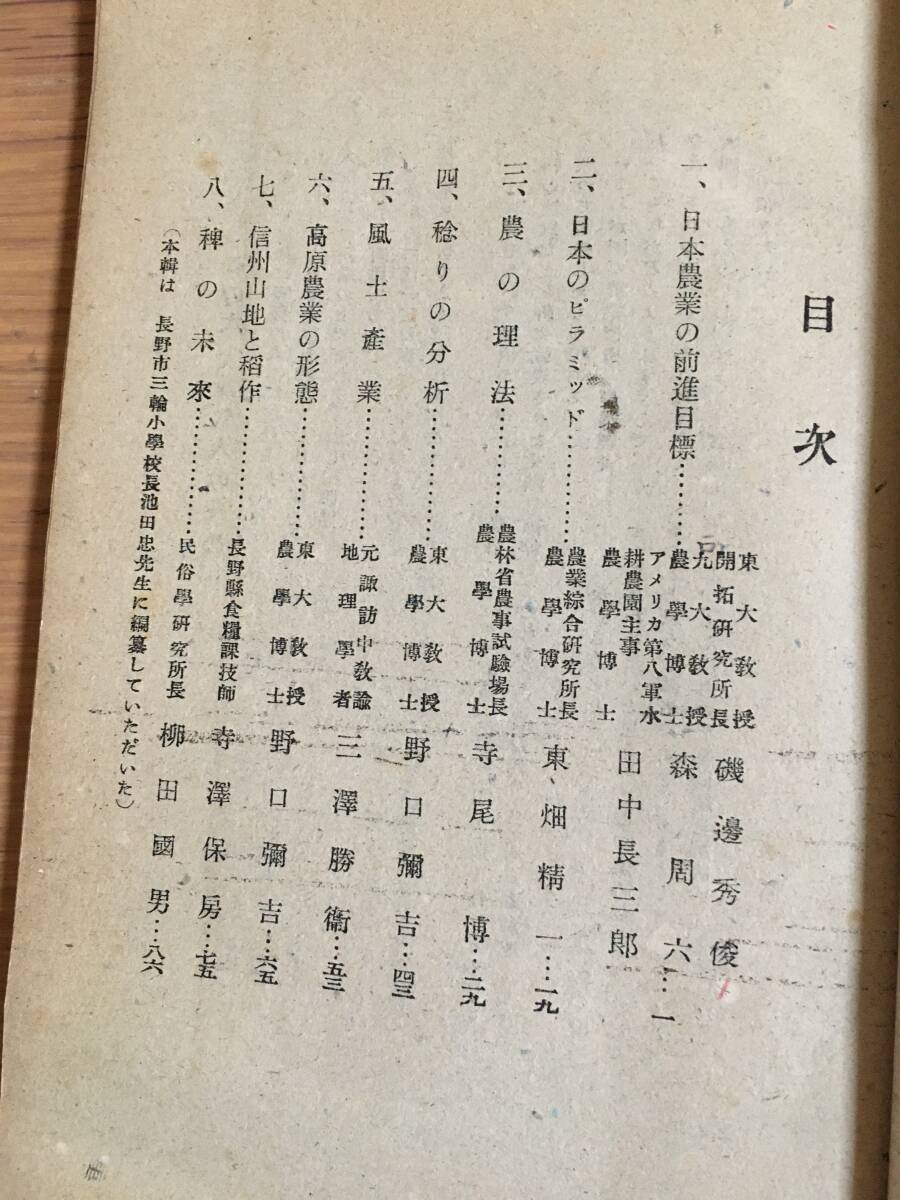 目次
一、日本農業の前進目標…………
東大教授
開拓研究所長
磯邊秀俊
九大教授
農學博士
森周六…一
アメリカ第八軍水
耕農園主事
農學博士
田中長三郎
二、日本のピラミッド…………
農業綜合研究所長
農學博士
東畑精一…一九
三、農の理法…………
農林省農事試驗場長
農學博士
寺尾博…二九
四、稔りの分析…………
東大教授
農學博士
野口彌吉…四三
五、風土產業…………
元諏訪中教諭
地理學者
三澤勝衞…五三
六、高原農業の形態…………
東大教授
農學博士
野口彌吉…六五
七、信州山地と稻作…………
長野縣食糧課技師
寺澤保房…七五
八、稗の未來…………
民俗學研究所長
柳田國男…八六
（本輯は 長野市三輪小學校長池田忠先生に編纂していただいた）